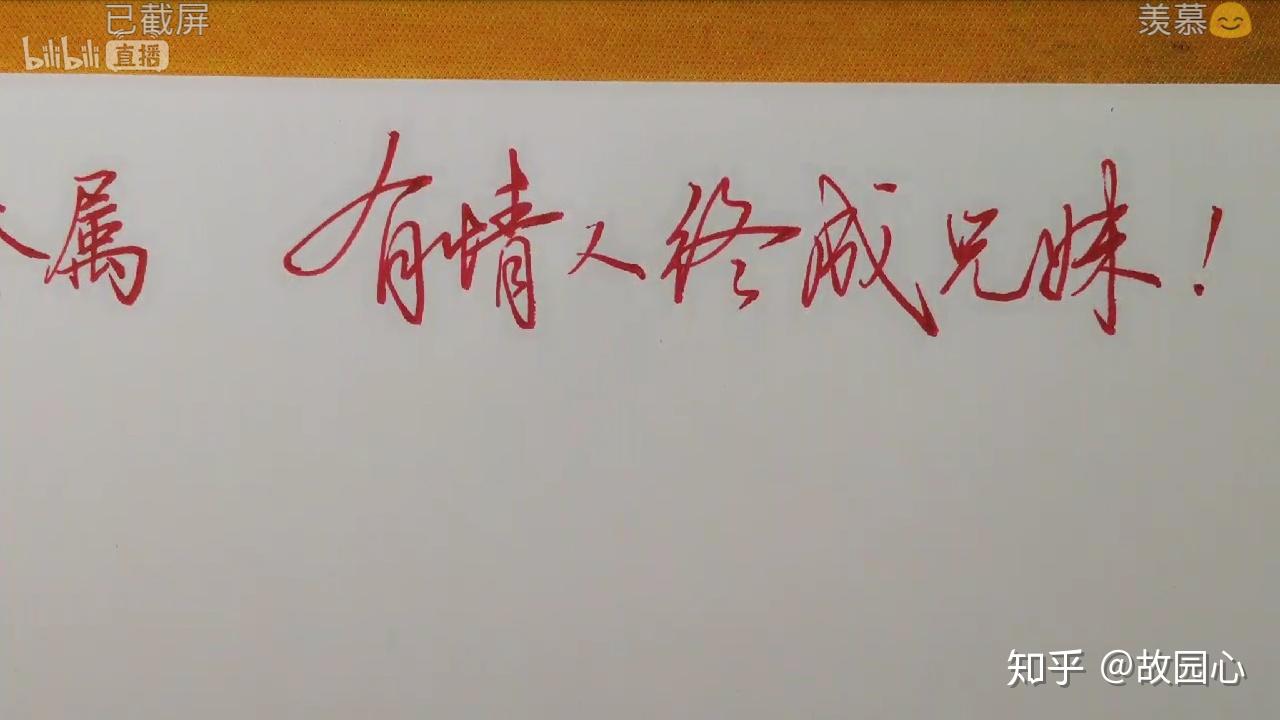 已截屏
羡慕😊
bilibili 直播
属 有情人终成兄妹！
知乎 @故园心